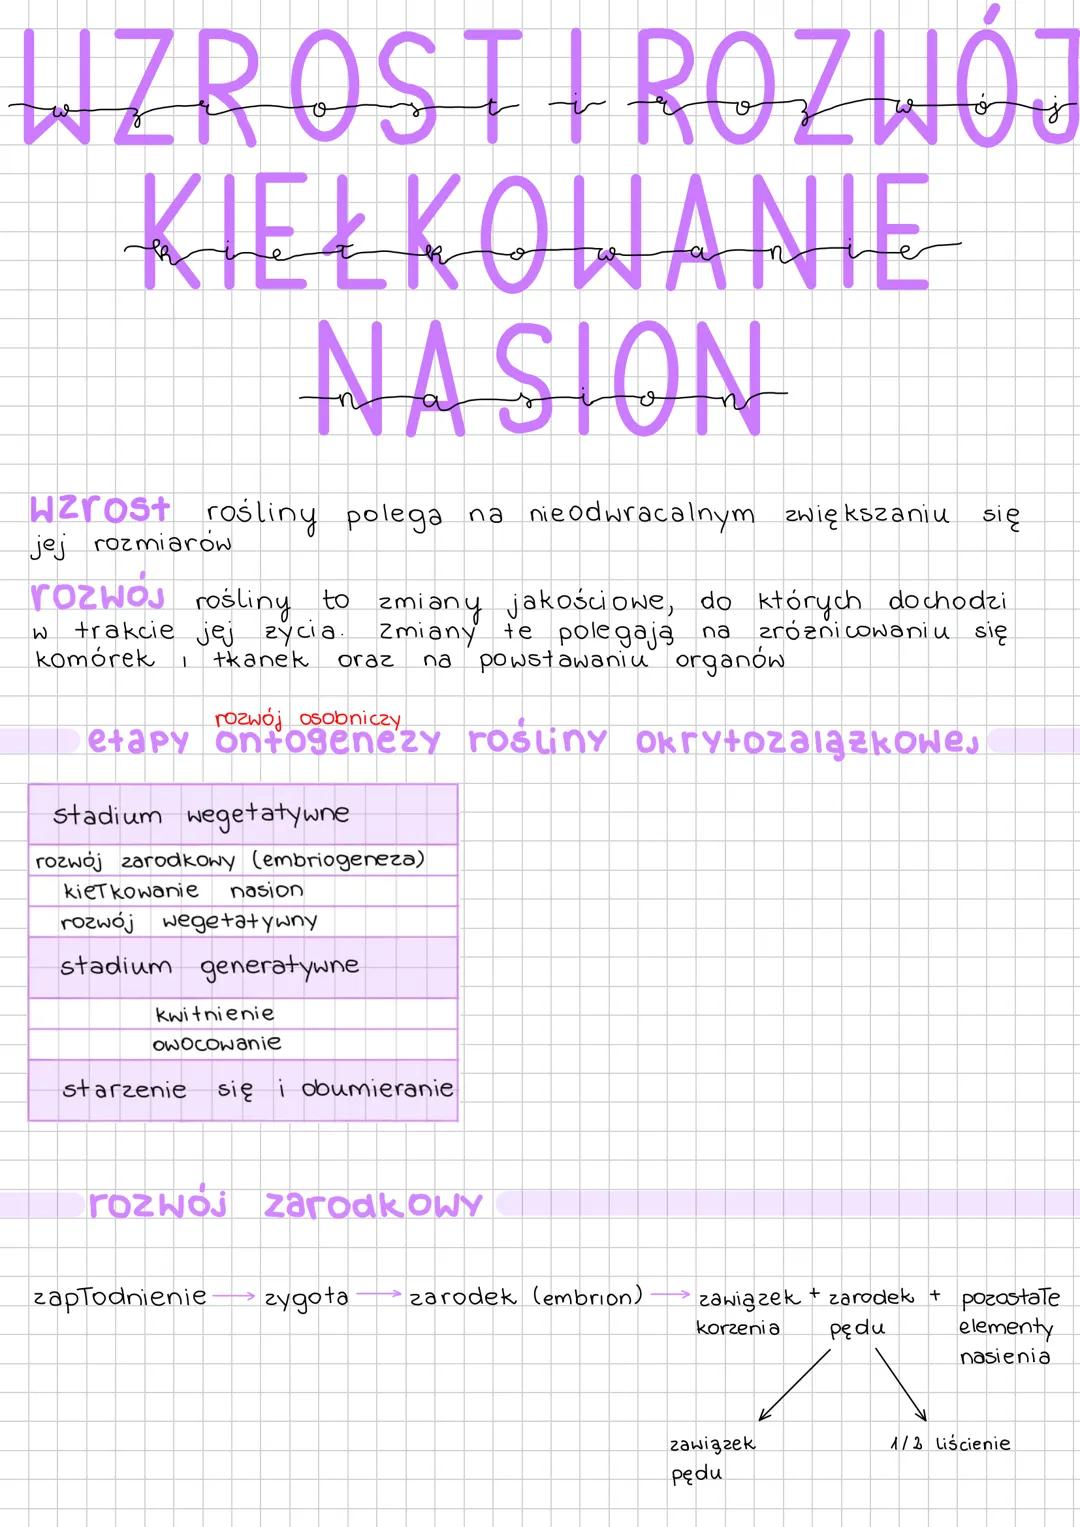 WZROST I ROZWÓJ
wzrost i rozwój
KIEŁKOWANIE
kiełkowanie
NASION
nasion
wzrost rośliny polega na nieodwracalnym zwiększaniu się
jej rozmiarów
rozwój rośliny to zmiany jakościowe, do których dochodzi
w trakcie jej życia. Zmiany te polegają na zróżnicowaniu się
komórek i tkanek oraz na powstawaniu organów
rozwój osobniczy
etapy ontogenezy rośliny okrytozalążkowej
stadium wegetatywne
rozwój zarodkowy (embriogeneza)
kiełkowanie nasion
rozwój wegetatywny
stadium generatywne
kwitnienie
owocowanie
starzenie się i obumieranie
rozwój zarodkowy
zapłodnienie → zygota → zarodek (embrion) → zawiązek + zarodek + pozostałe
korzenia pędu elementy
nasienia
zawiązek 1/2 liścienie
pędu